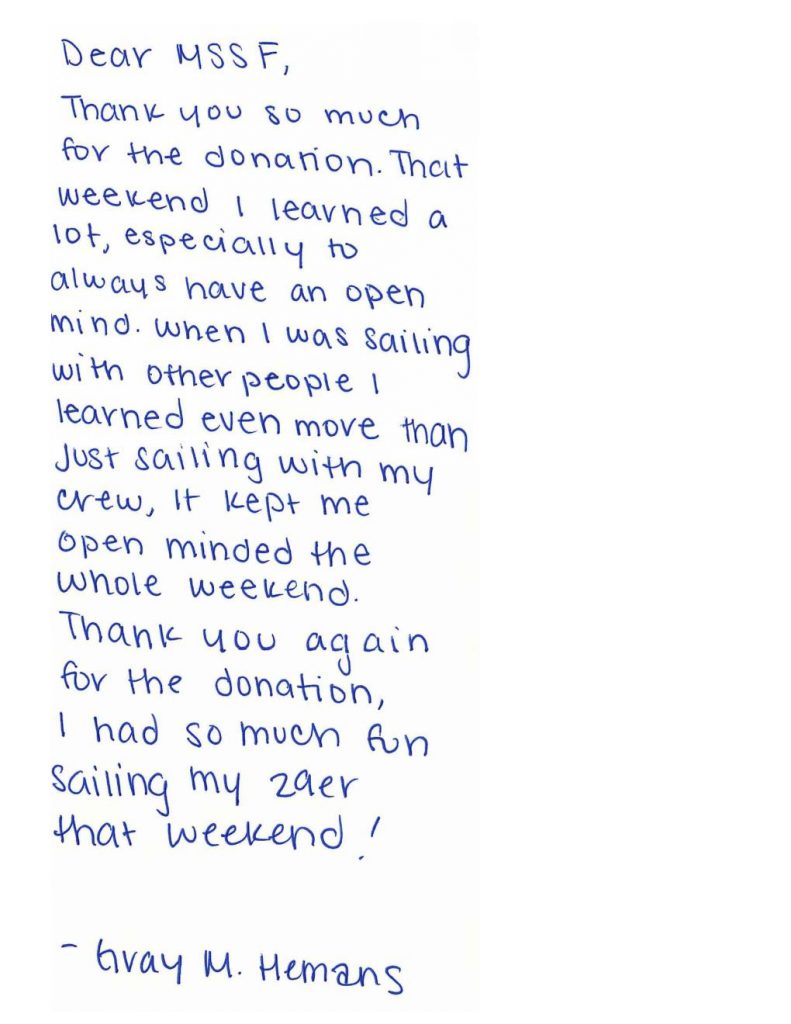 Dear MSSF,
Thank you so much
for the donation. That
weekend I learned a
lot, especially to
always have an open
mind. When I was sailing
with other people I
learned even more than
Just sailing with my
crew, It kept me
open minded the
whole weekend.
Thank you again
for the donation,
I had so much fun
sailing my 29er
that weekend!
- Gray M. Hemans